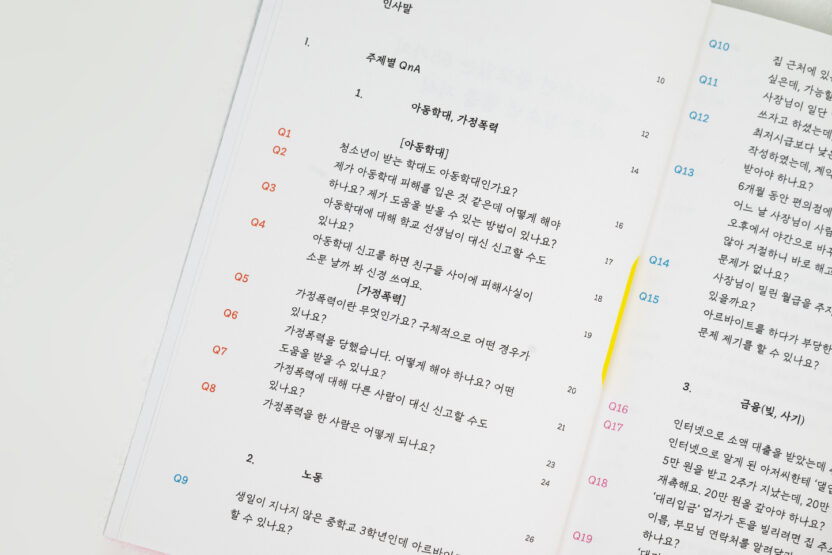 인사말
I.
주제별 QnA
10
1.
아동학대, 가정폭력
12
[아동학대]
Q1
청소년이 받는 학대도 아동학대인가요?
14
Q2
제가 아동학대 피해를 입은 것 같은데 어떻게 해야
하나요? 제가 도움을 받을 수 있는 방법이 있나요?
16
Q3
아동학대에 대해 학교 선생님이 대신 신고할 수도
있나요?
17
Q4
아동학대 신고를 하면 친구들 사이에 피해사실이
소문 날까 봐 신경 쓰여요.
18
[가정폭력]
Q5
가정폭력이란 무엇인가요? 구체적으로 어떤 경우가
있나요?
19
Q6
가정폭력을 당했습니다. 어떻게 해야 하나요? 어떤
도움을 받을 수 있나요?
20
Q7
가정폭력에 대해 다른 사람이 대신 신고할 수도
있나요?
21
Q8
가정폭력을 한 사람은 어떻게 되나요?
23
2.
노동
24
Q9
생일이 지나지 않은 중학교 3학년인데 아르바이
할 수 있나요?
26
Q10
집 근처에 있
Q11
싶은데, 가능할
사장님이 일단
Q12
쓰자고 하셨는데,
최저시급보다 낮은
작성하였는데, 계약
받아야 하나요?
Q13
6개월 동안 편의점에
어느 날 사장님이 사람
오후에서 야간으로 바꾸
않아 거절하니 바로 해고
문제가 없나요?
Q14
사장님이 밀린 월급을 주지
있을까요?
Q15
아르바이트를 하다가 부당한
문제 제기를 할 수 있나요?
3.
금융(빚, 사기)
Q16
인터넷으로 소액 대출을 받았는데
Q17
인터넷으로 알게 된 아저씨한테 '댈입
5만 원을 받고 2주가 지났는데, 20만
재촉해요. 20만 원을 갚아야 하나요?
Q18
'대리입금' 업자가 돈을 빌리려면 집 주
이름, 부모님 연락처를 알려달라
하나요?
Q19